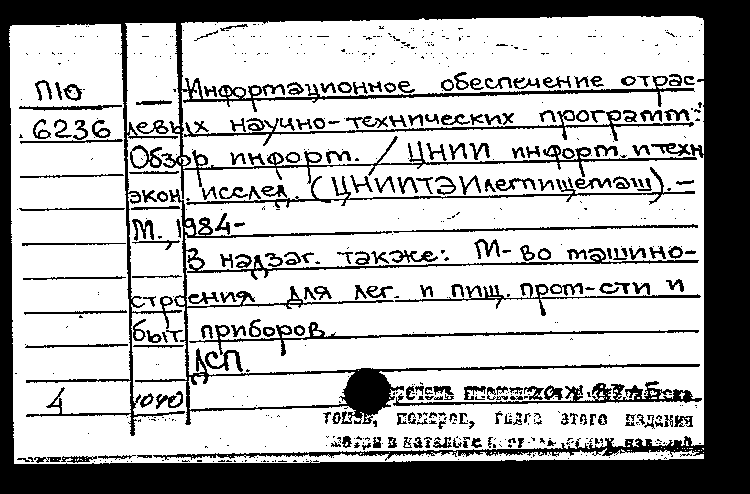 П10 — Информационное обеспечение отрас-
6236 левых научно-технических программ:
Обзор. информ. / ЦНИИ информ. и техн
экон. исслед. (ЦНИИТЭИлегпищемаш). –
М., 1984-
В надзаг. также: М-во машино-
строения для лег. и пищ. пром-сти и
быт. приборов.
ДСП.
4 1040
томов, номеров, годов этого издания
смотри в каталоге